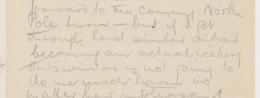 forward to the coming North
Pole turn — but if I got
through last winter without
becoming an actual iceberg
this winter is not going to
do me much harm no
matter how unpleasant